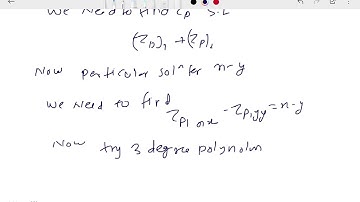 we need to find Zp s.t
(ZD)₁ + (ZP)₁
Now particular solⁿ for x-y
we need to find
ZP1 xx - ZP1yy = x-y
Now try 3 degree polynolm